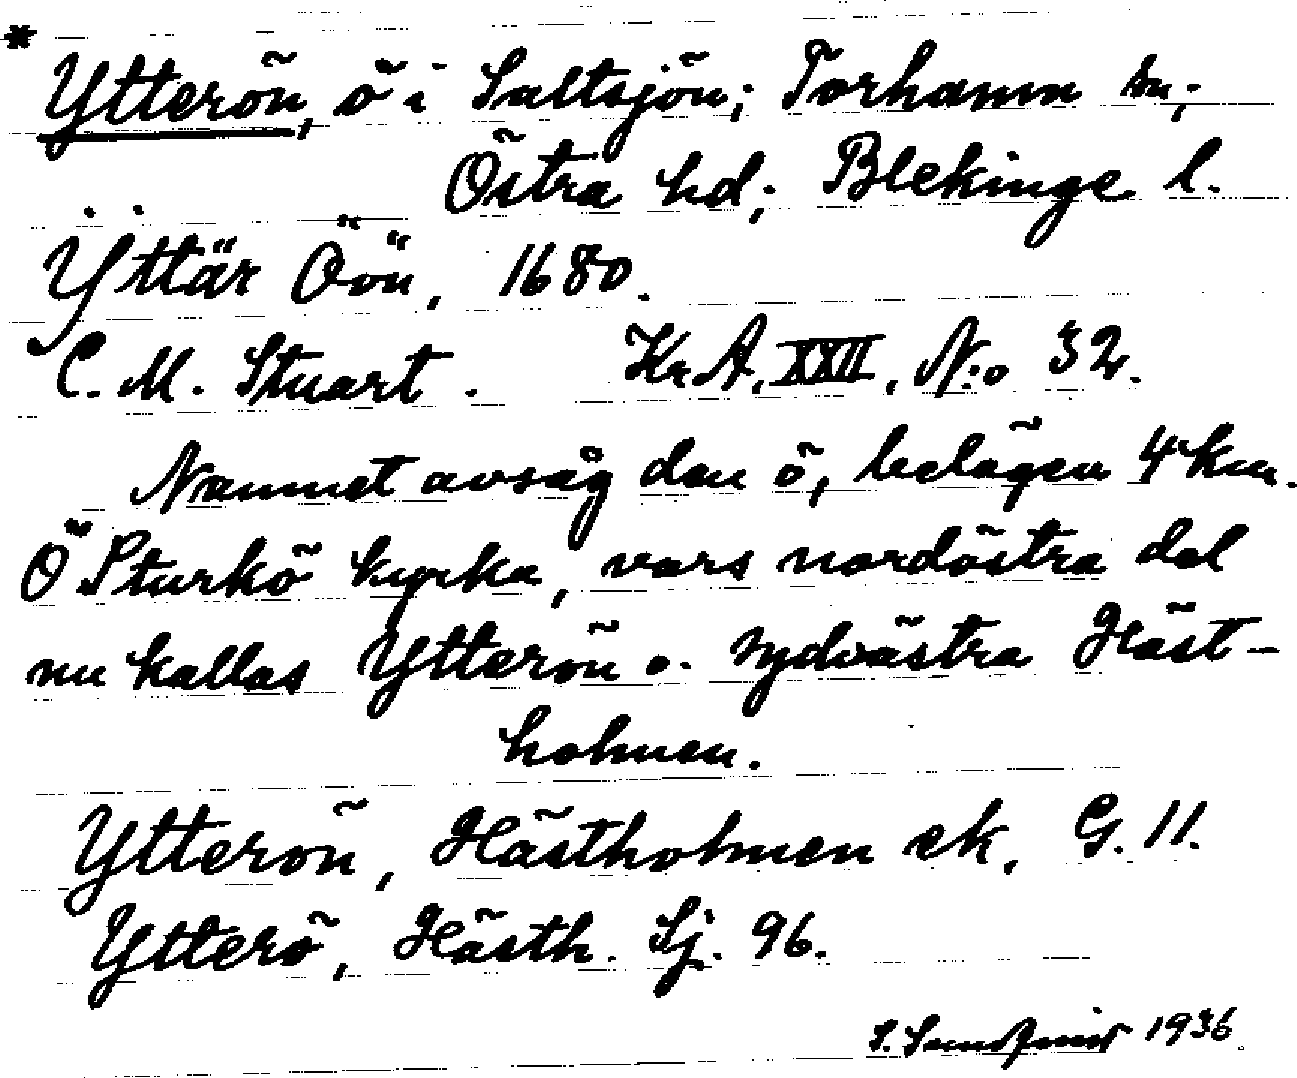 * Ytterön, ö i Saltsjön; Torhamn sn;
Östra hd; Blekinge l.
Ÿttär Öön, 1680.
C. M. Stuart. Kr A. XXII, N:o 32.
Namnet avsåg den ö, belägen 4 km.
Ö Sturkö kyrka, vars nordöstra del
nu kallas Ytterön o. sydvästra Häst-
holmen.
Ytterön, Hästholmen ek. G. 11.
Ytterö, Hästh. Sj. 96.
S. 1936